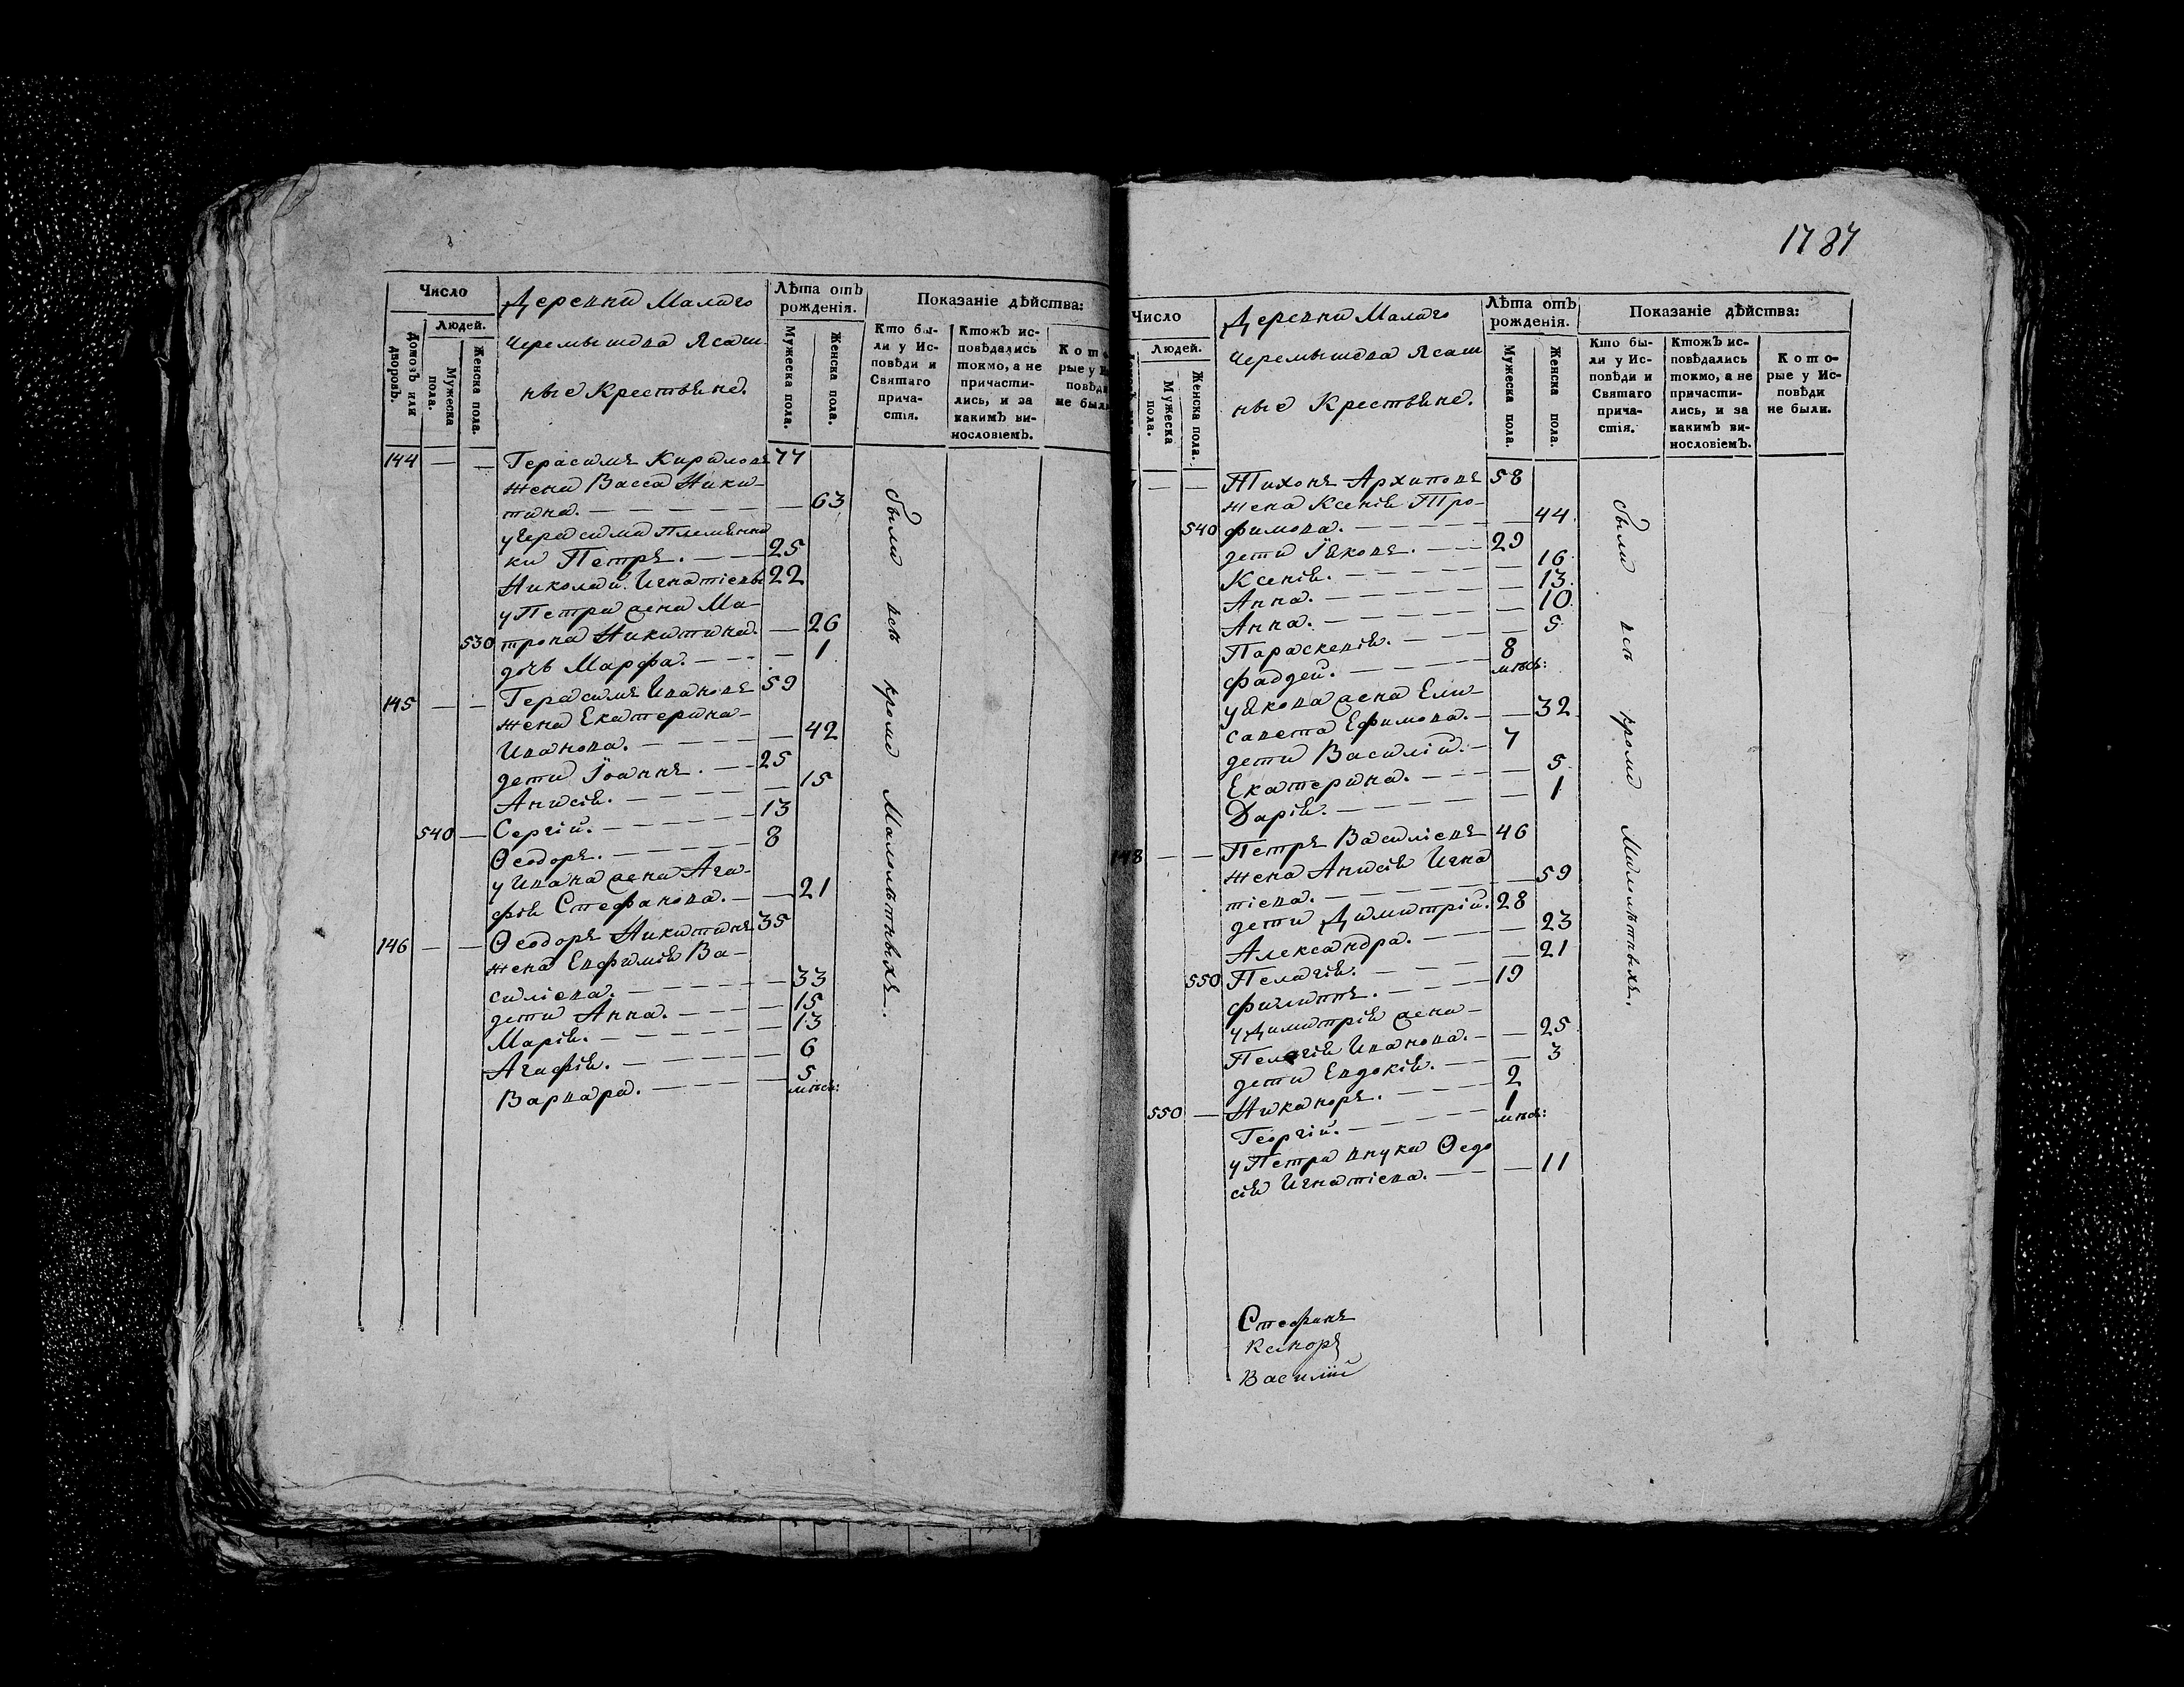 Число
Людей.
Домовъ или дворовъ.
Мужеска пола.
Женска пола.
Деревни Малаго
Черемышева Ясаш
ные Крестьяне.
Лѣта отъ рожденія.
Мужеска пола.
Женска пола.
Показаніе дѣйства:
Кто бы-
ли у Ис-
повѣди и
Святаго
прича-
стія.
Ктожъ ис-
повѣдались
токмо, а не
причасти-
лись, и за
какимъ ви-
нословіемъ.
144 — — Герасимъ Кириловъ 77
жена Васса Ники-
тина. — 63
у Герасима Племянни
ки Петръ. — 25
Николай Игнатіевы 22
у Петра жена Ма-
530 трона Никитина. — 26
дочь Марфа. — 1
145 — — Герасимъ Ивановъ 59
жена Екатерина
Иванова. — 42
дети Іоаннъ. — 25
Анисія. — 15
540 — Сергій. — 13
Ѳеодоръ. — 8
у Ивана жена Ага-
фія Стефанова. — 21
146 — — Ѳеодоръ Никитинъ 35
жена Евфимія Ва-
силіева. — 33
дети Анна. — 15
Марія. — 13
Агафія. — 6
Варвара. — 5
мѣсъ:
были всѣ кроме Малолѣтныхъ.
1787
Число
Людей.
Мужеска пола.
Женска пола.
Деревни Малаго
Черемышева Ясаш
ные Крестьяне.
Лѣта отъ рожденія.
Мужеска пола.
Женска пола.
Показаніе дѣйства:
Кто бы-
ли у Ис-
повѣди и
Святаго
прича-
стія.
Ктожъ ис-
повѣдались
токмо, а не
причасти-
лись, и за
какимъ ви-
нословіемъ.
Кото-
рые у Ис-
повѣди
не были.
— — Тихонъ Архиповъ 58
жена Ксенія Тро-
540 фимова. — 44
дети Іяковъ. — 29
Ксенія. — 16
Анна. — 13
Анна. — 10
Параскевія. — 5
Фаддей. — 8
мѣсъ:
у Якова жена Ели-
савета Ефимова. — 32
дети Василій. — 7
Екатерина. — 5
Дарія. — 1
148 — — Петръ Василіевъ 46
жена Анисія Игна
тіева. — 59
дети Димитрій. 28
Александра. — 23
550 Пелагія. — 21
Филиппъ. — 19
у Димитрія жена
Пелагія Иванова. — 25
дети Евдокія. — 3
550 — Никаноръ. — 2
Георгій. — 1
мѣсъ:
у Петра внука Ѳедо
сія Игнатіева. — 11
были всѣ кроме Малолѣтныхъ.
Стефанъ
Василій